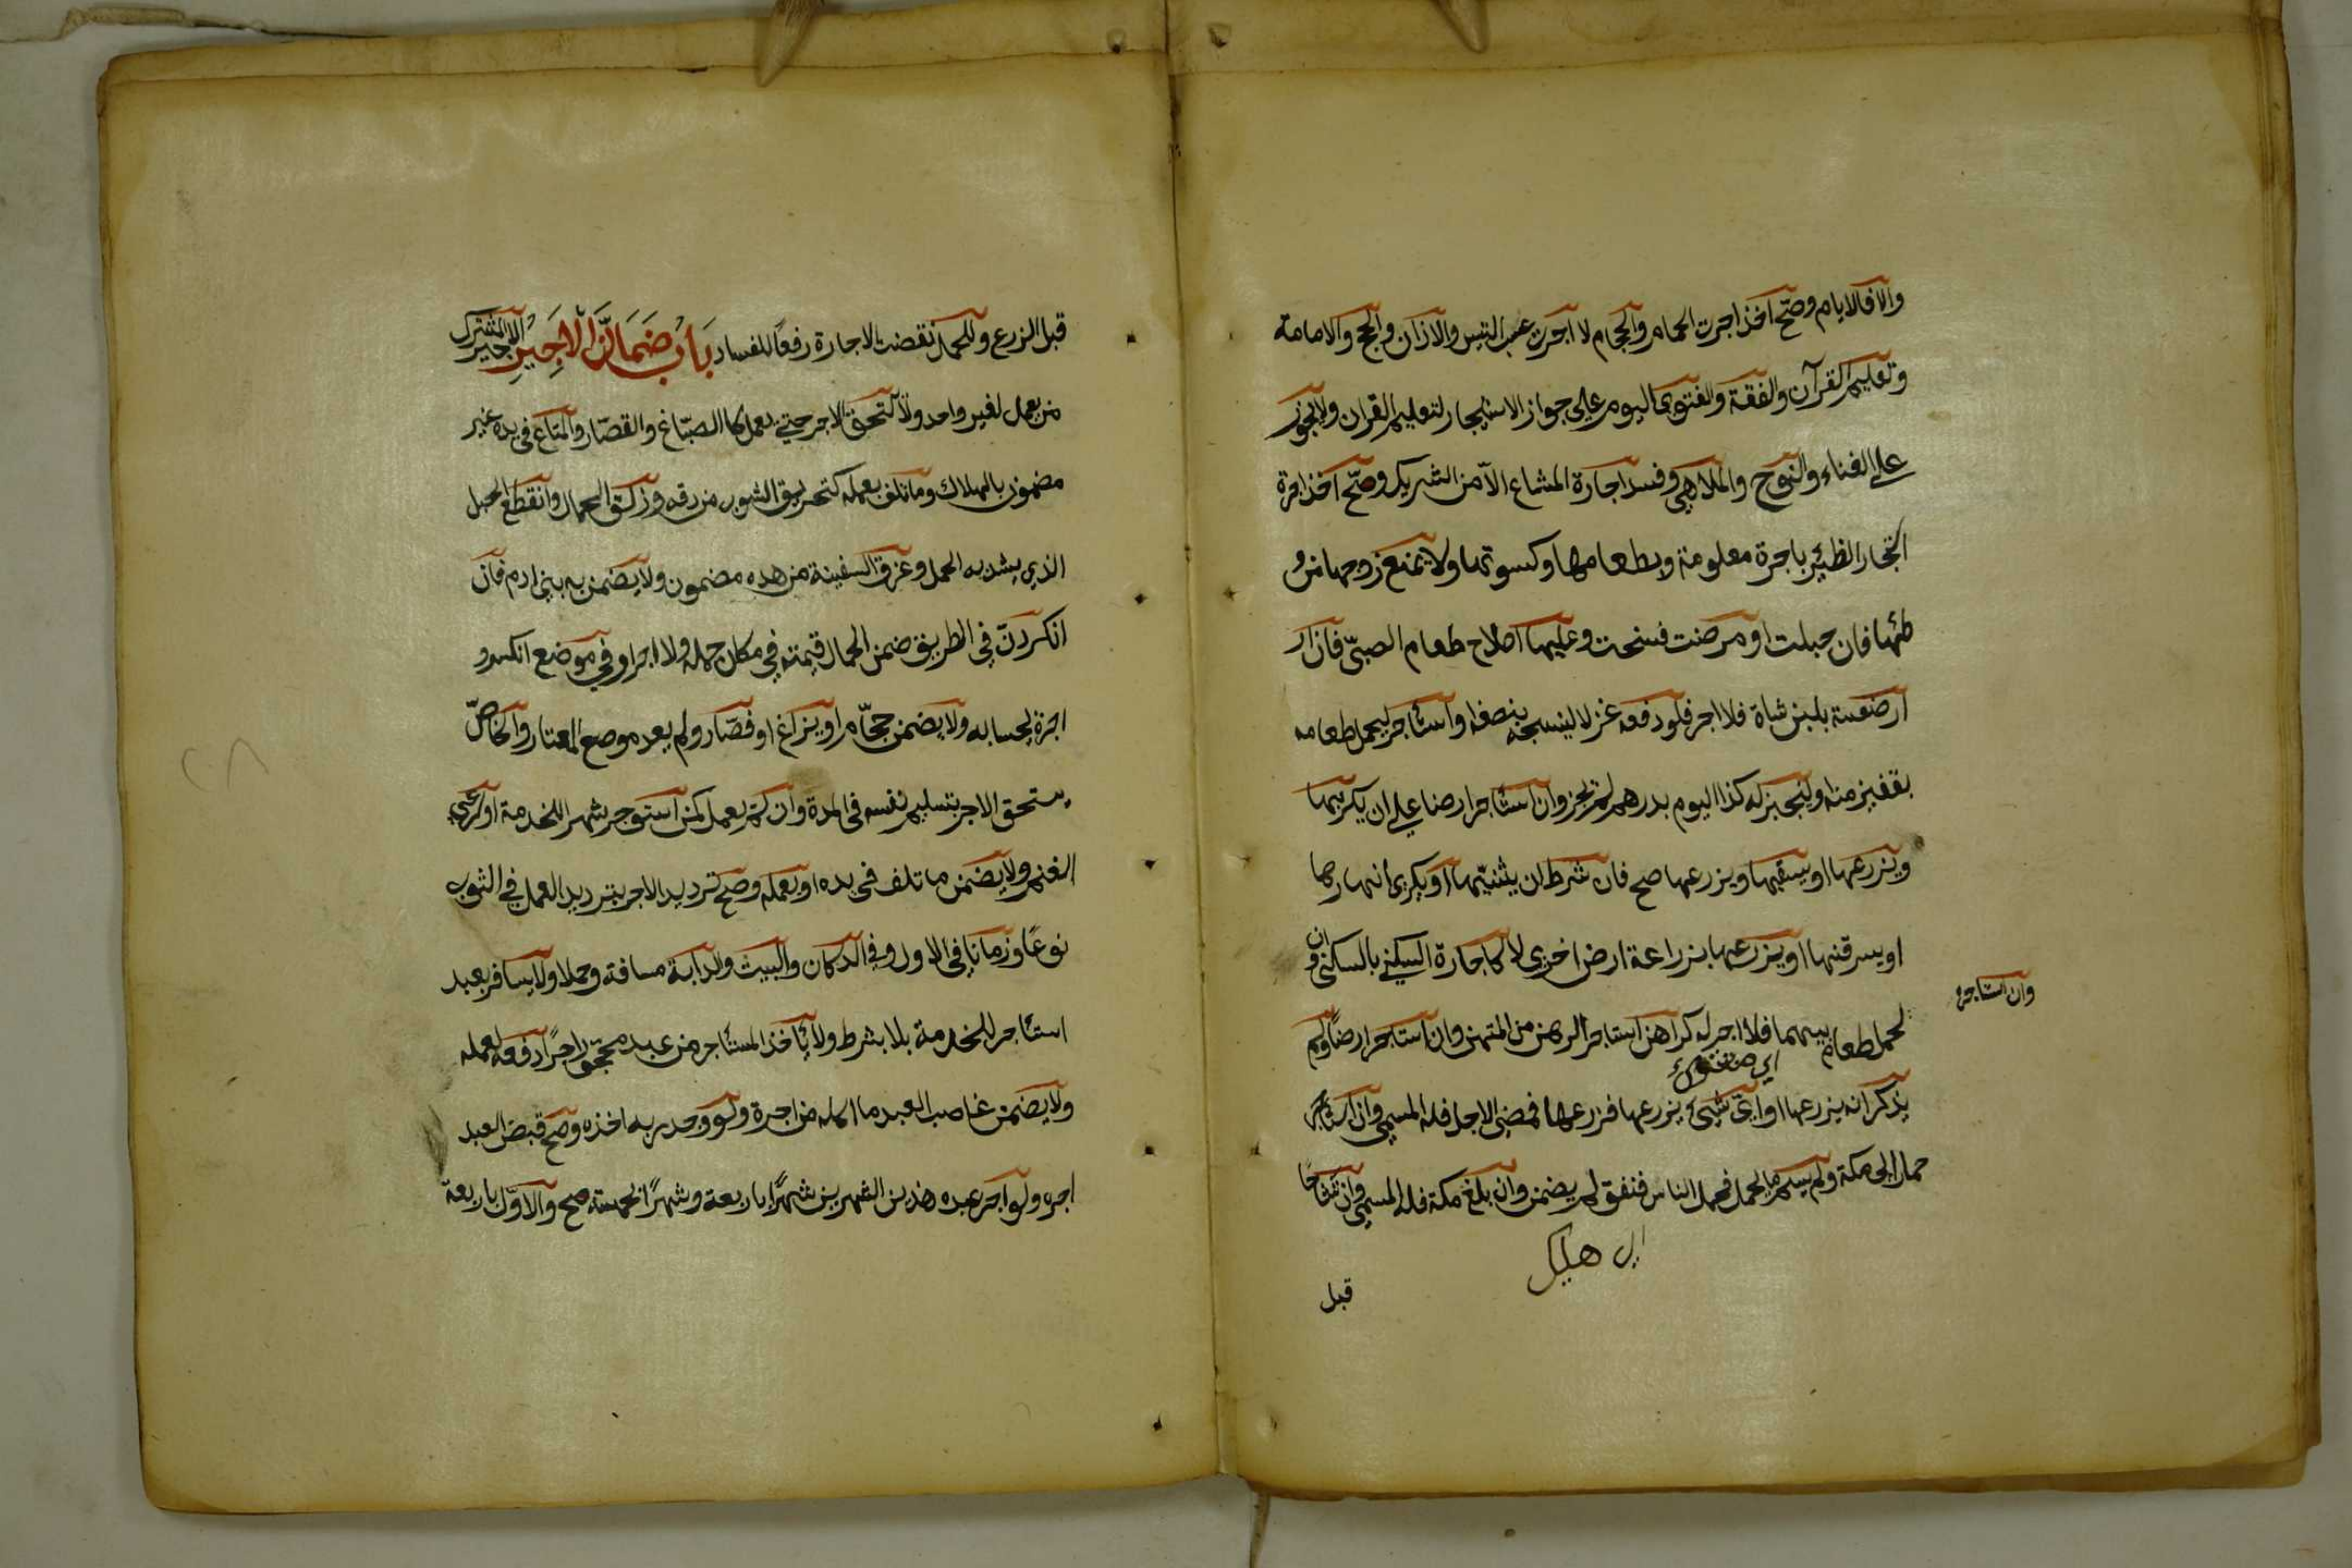 والا فالايام وصح اخذ اجرت الحمام والحجام لا اجرت عسب التيس والاذان والحج والامامة
وتعليم القرآن والفقة والفتوى اليوم على جواز الاستيجار لتعليم القران ولا يجوز
على الغناء والنوح والملاهي وفسد اجارة المشاع الا من الشريك وصح اخذ اجرة
الظئير باجرة معلومة وبطعامها وكسوتها ولا يمنع زوجها من و
طئها فان حبلت او مرضت فسخت وعليها اصلاح طعام الصبي فان ار
ارضعته بلبن شاة فلا اجر فلو دفعه غزلا لينسجه بنصفه واستاجر ليحمل طعامه
بقفيز منه او ليخبز له كذا اليوم بدرهم لم تجز وان استاجر ارضا على ان يكربها
ويزرعها او يسقيها ويزرعها صح فان شرط ان يثنيها او يكري انهارها
او يسرقنها او يزرعها بزراعة ارض اخرى لا كاجارة السكنى بالسكنى و ان
وان استاجره
لحمل طعام بينهما فلا اجر له كراهن استاجر الرهن من المرتهن وان استاجر ارضا ولم
يذكر انه يزرعها او اى شيئ يزرعها فزرعها فمضى الاجل فله المسمى وان استاجر
حمارا الى مكة ولم يسم ما يحمل فحمل الناس فنفق لم يضمن وان بلغ مكة فله المسمى وان تشاحا
اى هلك
قبل
قبل الزرع والحمل نقضت الاجارة رفعا للفساد باب ضمان الاجير الاجير المشترك
من يعمل لغير واحد ولا يستحق الاجر حتى يعمل كالصباغ والقصار والمتاع في يده غير
مضمون بالهلاك وما تلف بعمله كتحريق الثوب من دقه وزلق الحمال وانقطع الحبل
الذي يشد به الحمل وغرق السفينة من مده مضمون ولا يضمن به بني ادم فان
انكسر دن في الطريق ضمن الحمال قيمته في مكان حمله ولا اجر او في موضع انكسر و
اجرة بحسابه ولا يضمن حجام او بزاغ او فصاد ولم يعد موضع المعتاد والخاص
يستحق الاجر بتسليم نفسه في المدة وان لم يعمل كمن استوجر شهرا للخدمة او لرعي
الغنم ولا يضمن ما تلف في يده او بعمله وصح ترديد الاجر بترديد العمل في الثوب
نوعا وزمانا في الاول وفي الدكان والبيت والدابة مسافة وحملا ولا يسافر بعبد
استاجر للخدمة بلا شرط ولا يأخذ المستأجر من عبد محجور اجرا دفعه لعمله
ولا يضمن غاصب العبد ما اكله من اجرة ولو وجد ربه اخذه وصح قبض العبد
اجره ولو اجر عبده هذين الشهرين شهرا باربعة وشهرا بخمسة صح والاول باربعة